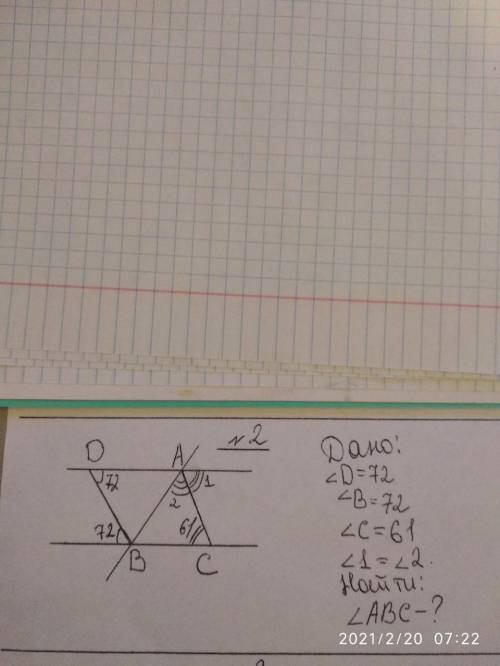 №2
D
A
72
1
2
72
61
B
C
Дано:
∠D=72
∠B=72
∠C=61
∠1=∠2.
Найти:
∠ABC-?
2021/2/20 07:22